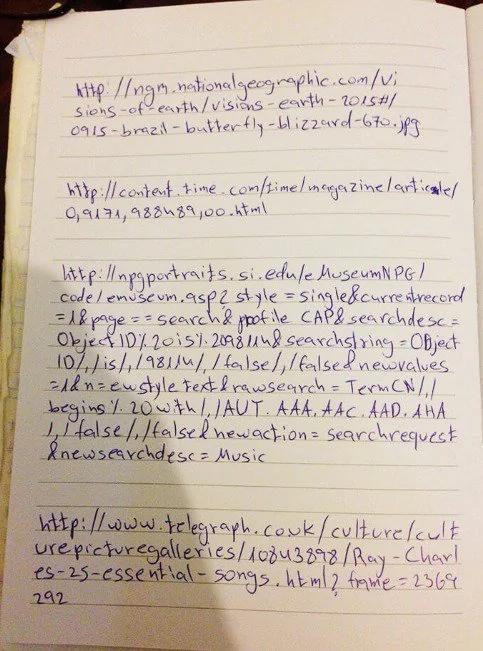 http://ngm.nationalgeographic.com/vi
sions-of-earth/visions-earth-2015#/
0915-brazil-butterfly-blizzard-670.jpg
http://content.time.com/time/magazine/article/
0,9171,988489,00.html
http://npgportraits.si.edu/eMuseumNPG/
code/emuseum.asp? style=single&currentrecord
=1&page==search& profile CAP& searchdesc=
Object ID%20is%209811u& searchstring=Object
ID/,/is/,/9811u/,/false/,/false& newvalues
=1&n=ewstyle text& rawsearch=TermCN/,/
begins%20with/,/AUT.AAA.AAC.AAD.AHA
/,/false/,/false& newaction=searchrequest
&newsearchdesc=Music
http://www.telegraph.co.uk/culture/cult
urepicturegalleries/10843898/Ray-Charl
es-25-essential-songs.html? frame=2369
292